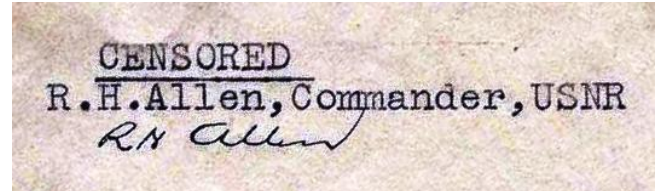 CENSORED
R.H.Allen,Commander,USNR
RH Allen